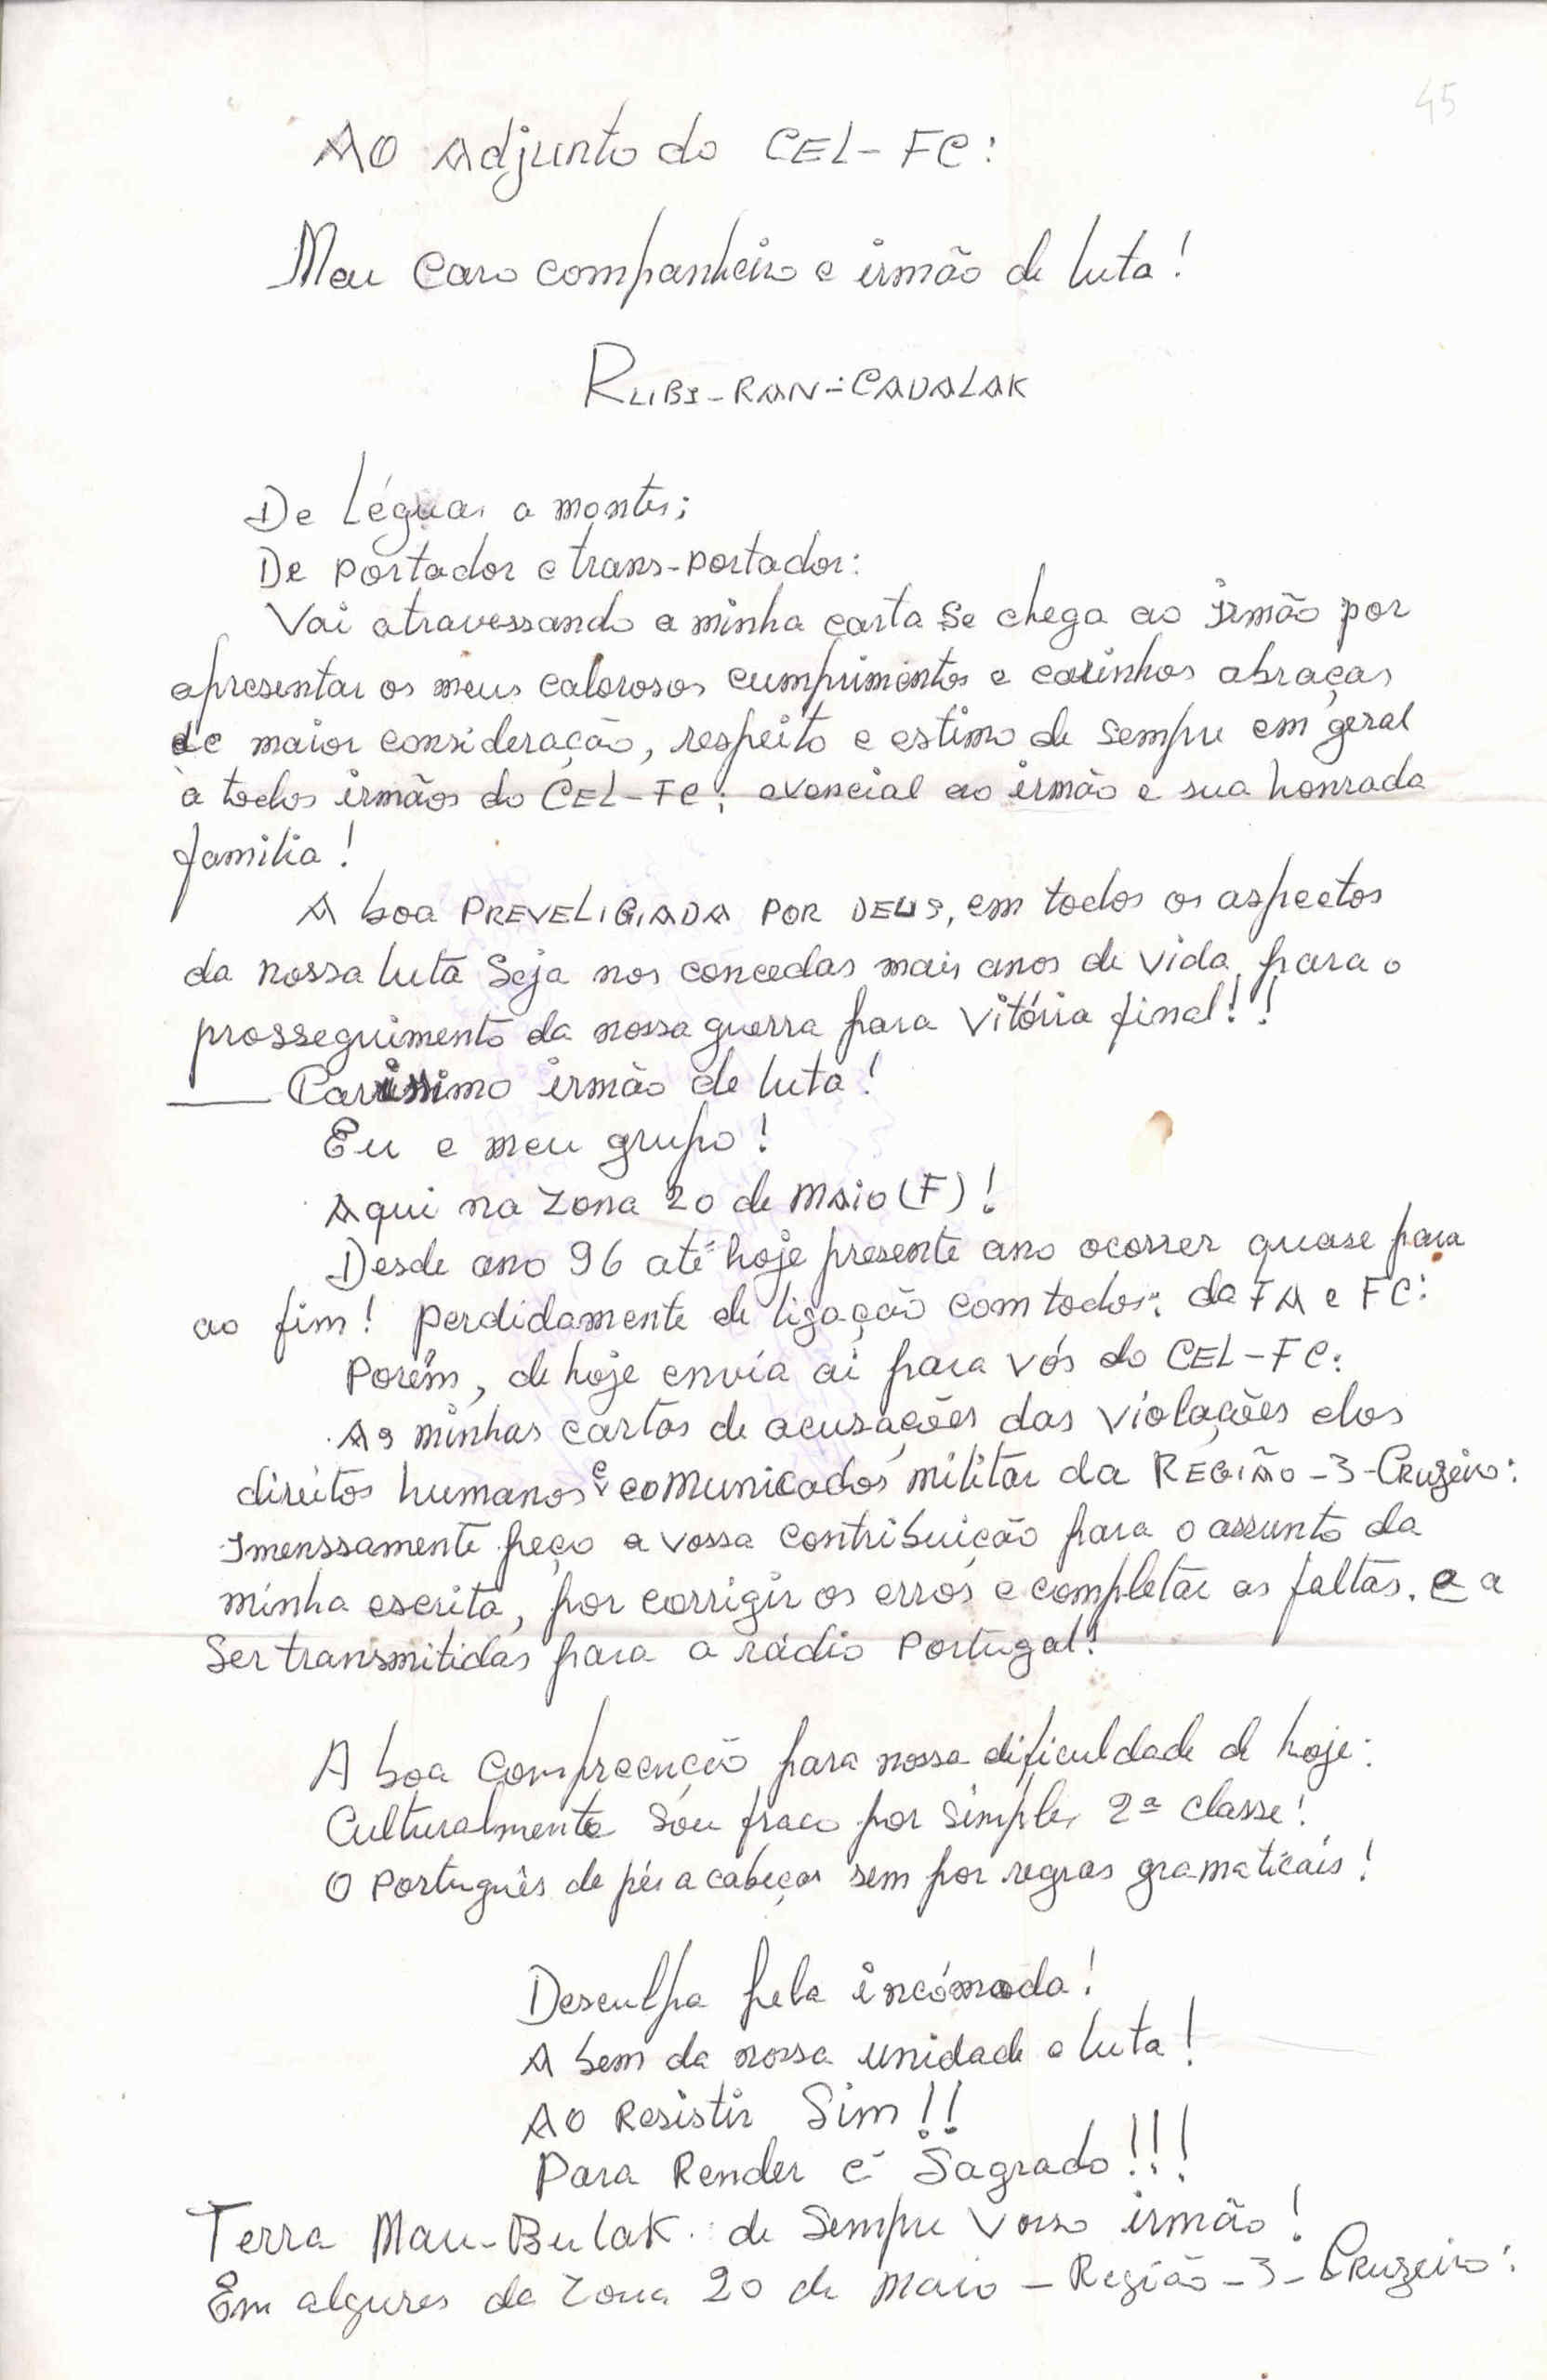 45
AO Adjunto do CEL-FC:
Meu Caro companheiro e irmão de luta!
RUBI-RAN-CAVALAK
De Léguas a montes;
De portador e trans-portador:
Vai atravessando a minha carta se chega ao Irmão por
apresentar os meus calorosos cumprimentos e carinhos abraças
de maior consideração, respeito e estimo de sempre em geral
à todos irmãos do CEL-FC; evencial ao irmão e sua honrada
familia!
A boa PREVELIGIADA POR DEUS, em todos os aspectos
da nossa luta Seja nos concedas mais anos de vida, para o
prosseguimento da nossa guerra para Vitória final!!
— Carissimo irmão de luta!
Eu e meu grupo!
Aqui na Zona 20 de Maio (F)!
Desde ano 96 até hoje presente ano ocorrer quase para
ao fim! perdidamente de ligação com todos: da FA e FC:
Porêm, de hoje envía aí para vós do CEL-FC:
As minhas cartas de acusações das violações dos
direitos humanos e comunicados militar da REGIÃO-3-Cruzeiro:
Imenssamente peço a vossa contribuição para o assunto da
minha escrita, por corrigir os erros e completar as faltas. e a
Ser transmitidas para a rádio Portugal!
A boa compreenção para nossa dificuldade de hoje:
Culturalmente sou fraco por simples 2ª classe!
O Português de pés a cabeças sem por regras gramaticais!
Desculpa pela incómoda!
A bem da nossa unidade e luta!
AO Resistir Sim!!
Para Render é Sagrado!!!
Terra Mau-Bulak: de Sempre Vosso irmão!
Em algures da Zona 20 de Maio - Região-3-Cruzeiro: